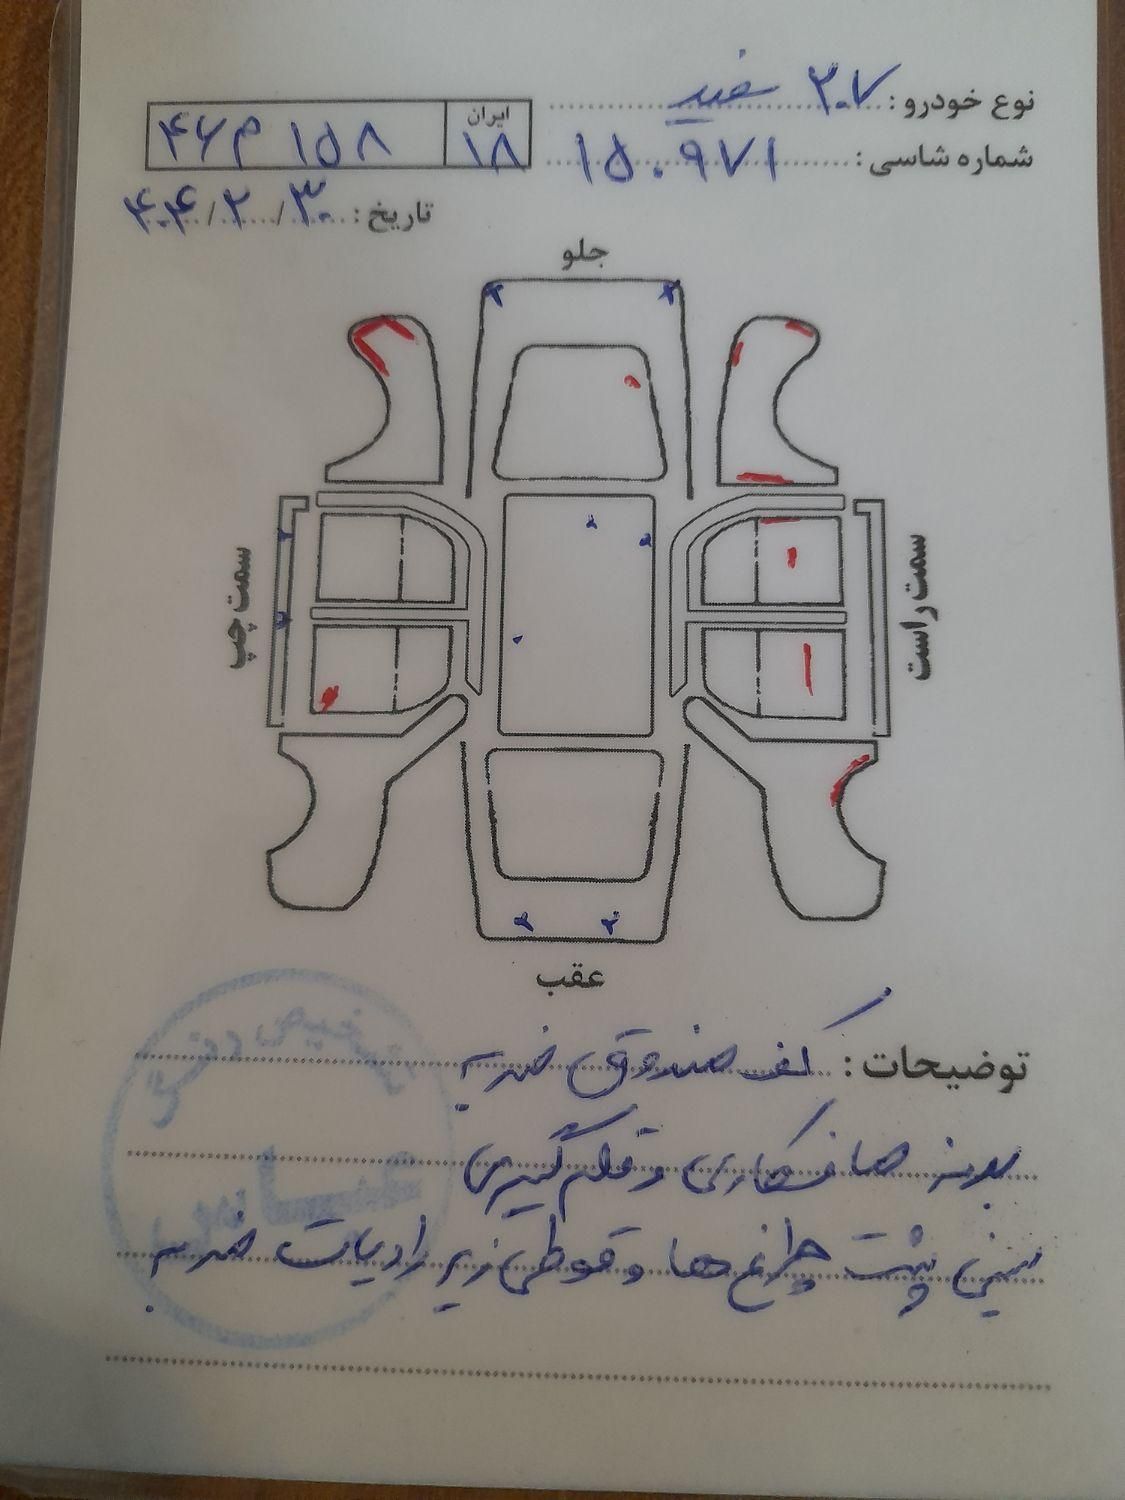 نوع خودرو: ۲۰۷ سفید
شماره شاسی: ۱۵۰۹۷۱
ایران
۱۸
۴۶ م ۱۵۸
تاریخ: ۴۰۴/۲/۳۰
جلو
سمت چپ
سمت راست
عقب
توضیحات: کف صندوق ضربه
بدنه صافکاری و قلم گیری
سینی پشت چراغ ها و قوطی زیر رادیات ضربه